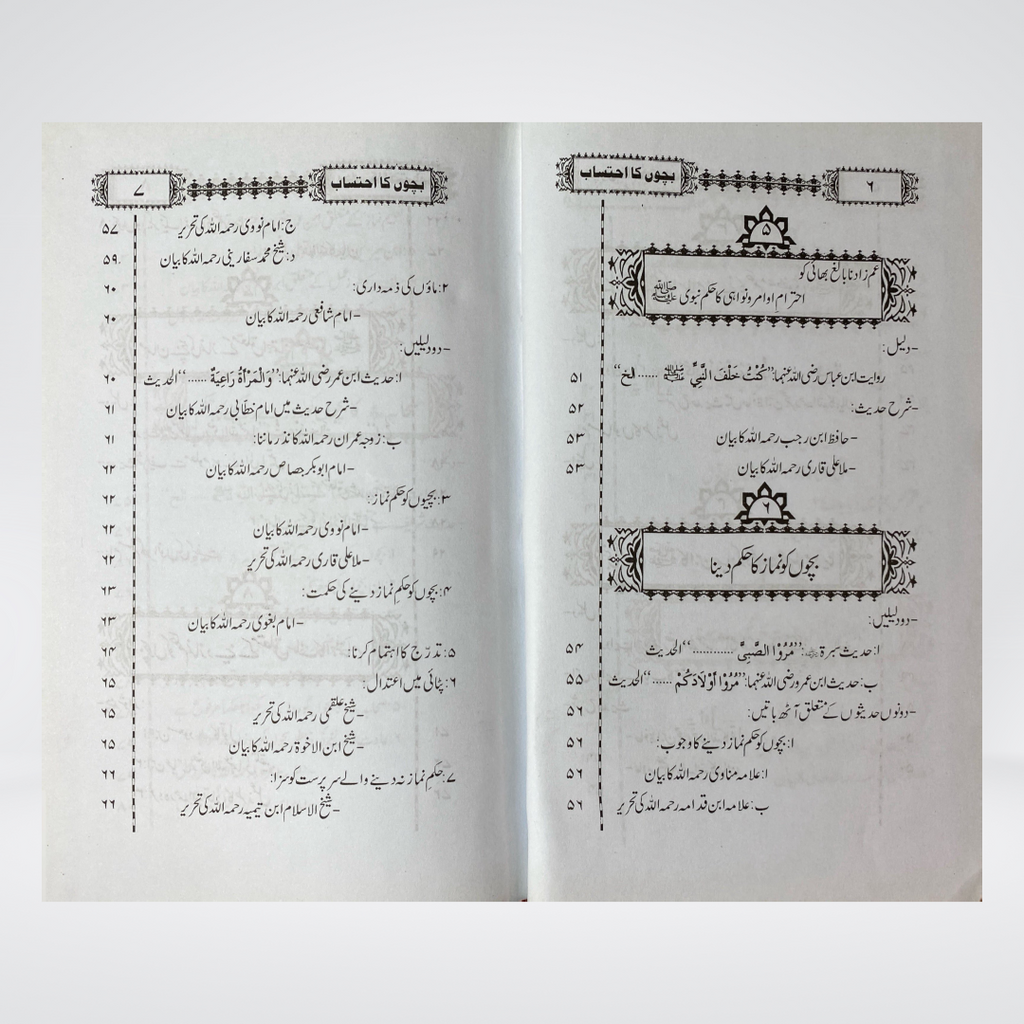 ۶
بچوں کا احتساب
۵
عم زاد نابالغ بھائی کو
احترامِ اوامر و نواہی کا حکم نبوی ﷺ
-دلیل:
روایت ابن عباس رضی اللہ عنہما:”کُنْتُ خَلْفَ النَّبِيِّ ﷺ ...... الخ“ ۵۱
-شرح حدیث: ۵۲
-حافظ ابن رجب رحمہ اللہ کا بیان ۵۳
-ملا علی قاری رحمہ اللہ کا بیان ۵۳
۶
بچوں کو نماز کا حکم دینا
-دو دلیلیں:
ا: حدیث سبرۃ ؓ:”مُرُوْا الصَّبِيَّ ............“ الحدیث ۵۴
ب: حدیث ابن عمرو رضی اللہ عنہما:”مُرُوْا أَوْلَادَكُمْ ......“ الحدیث ۵۵
-دونوں حدیثوں کے متعلق آٹھ باتیں: ۵۶
ا: بچوں کو حکم نماز دینے کا وجوب: ۵۶
ا: علامہ مناوی رحمہ اللہ کا بیان ۵۶
ب: علامہ ابن قدامہ رحمہ اللہ کی تحریر ۵۶
بچوں کا احتساب
۷
ج: امام نووی رحمہ اللہ کی تحریر ۵۷
د: شیخ محمد سفارینی رحمہ اللہ کا بیان ۵۹
۲: ماؤں کی ذمہ داری: ۶۰
-امام شافعی رحمہ اللہ کا بیان ۶۰
-دو دلیلیں:
ا: حدیث ابن عمر رضی اللہ عنہما:”وَالْمَرْأَةُ رَاعِيَةٌ ......“ الحدیث ۶۰
-شرح حدیث میں امام خطّابی رحمہ اللہ کا بیان ۶۱
ب: زوجہ عمران رحمہ اللہ کا نذر ماننا: ۶۱
-امام ابوبکر جصاص رحمہ اللہ کا بیان ۶۲
۳: بچیوں کو حکم نماز: ۶۲
-امام نووی رحمہ اللہ کا بیان ۶۲
-ملا علی قاری رحمہ اللہ کی تحریر ۶۲
۴: بچوں کو حکمِ نماز دینے کی حکمت: ۶۳
-امام بغوی رحمہ اللہ کا بیان ۶۳
۵: تدرّج کا اہتمام کرنا: ۶۴
۶: پٹائی میں اعتدال: ۶۵
-شیخ علقمی رحمہ اللہ کی تحریر ۶۵
-شیخ ابن الاخوۃ رحمہ اللہ کا بیان ۶۵
۷: حکمِ نماز نہ دینے والے سرپرست کو سزا: ۶۶
-شیخ الاسلام ابن تیمیہ رحمہ اللہ کی تحریر ۶۶